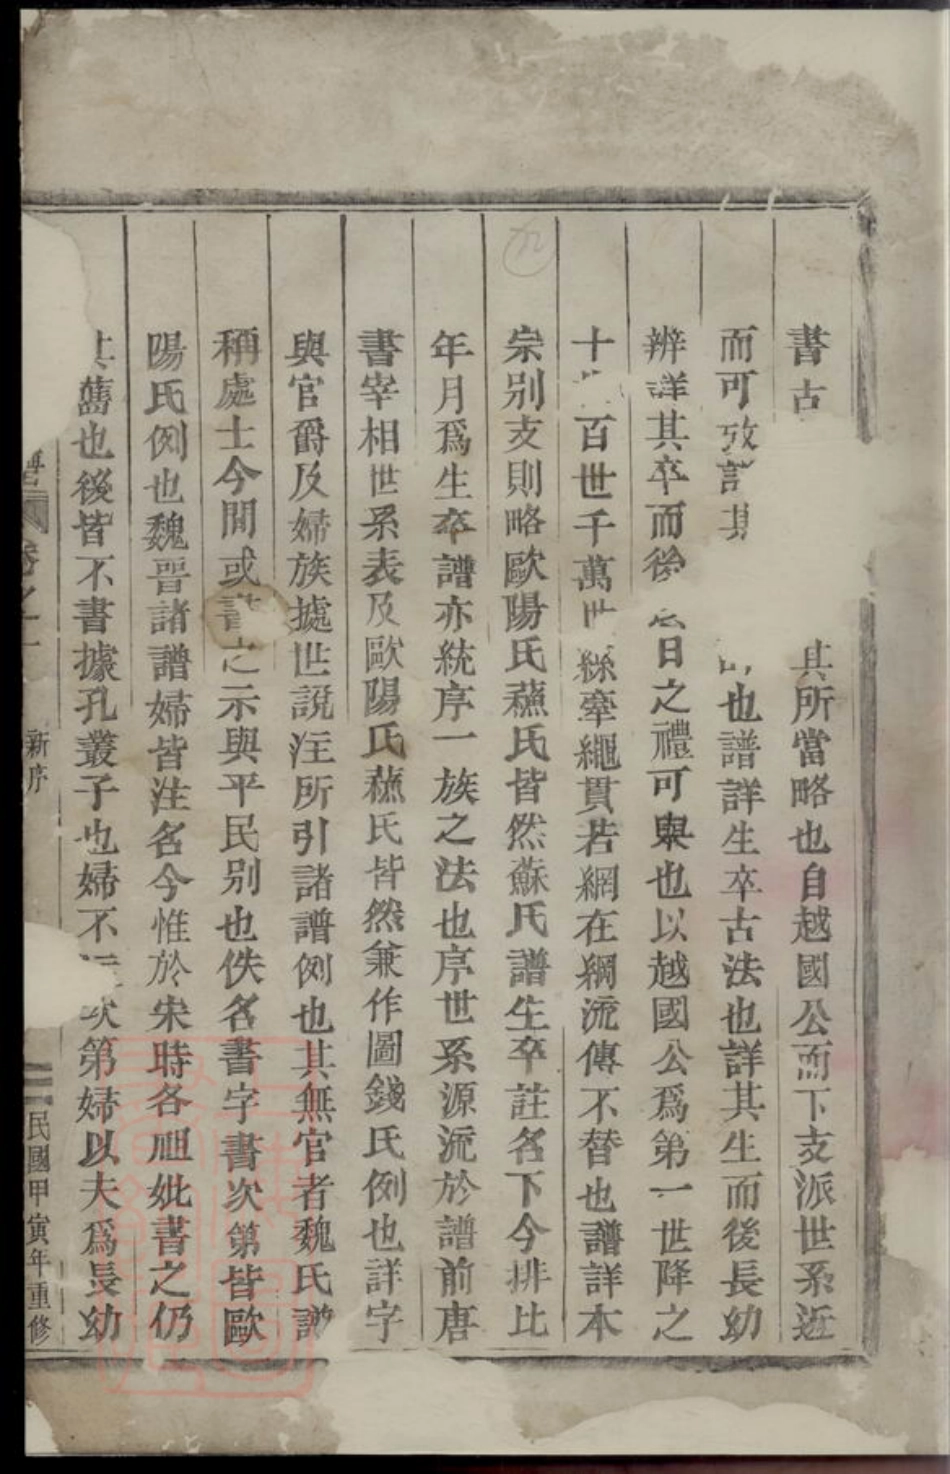 書古其所當略也自越國公而下支派世系近
而可攷詳其也譜詳生卒古法也詳其生而後長幼
辨詳其卒而後忌日之禮可舉也以越國公爲第一世降之
十世百世千萬世縣牽繩貫若網在綱流傳不替也譜詳本
宗别支則略歐陽氏蘓氏皆然蘇氏譜生卒註名下今排比
年月爲生卒譜亦統序一族之法也序世系源流於譜前唐
書宰相世系表及歐陽氏蘓氏皆然兼作圖錢氏例也詳字
與官爵及婦族據世説注所引諸譜例也其無官者魏氏譜
稱處士今間或書之示與平民别也佚名書字書次第皆歐
陽氏例也魏晋諸譜婦皆注名今惟於宋時各祖妣書之仍
其舊也後皆不書據孔叢子也婦不次第婦以夫爲長幼
卷之一
新序
民國甲寅年重修